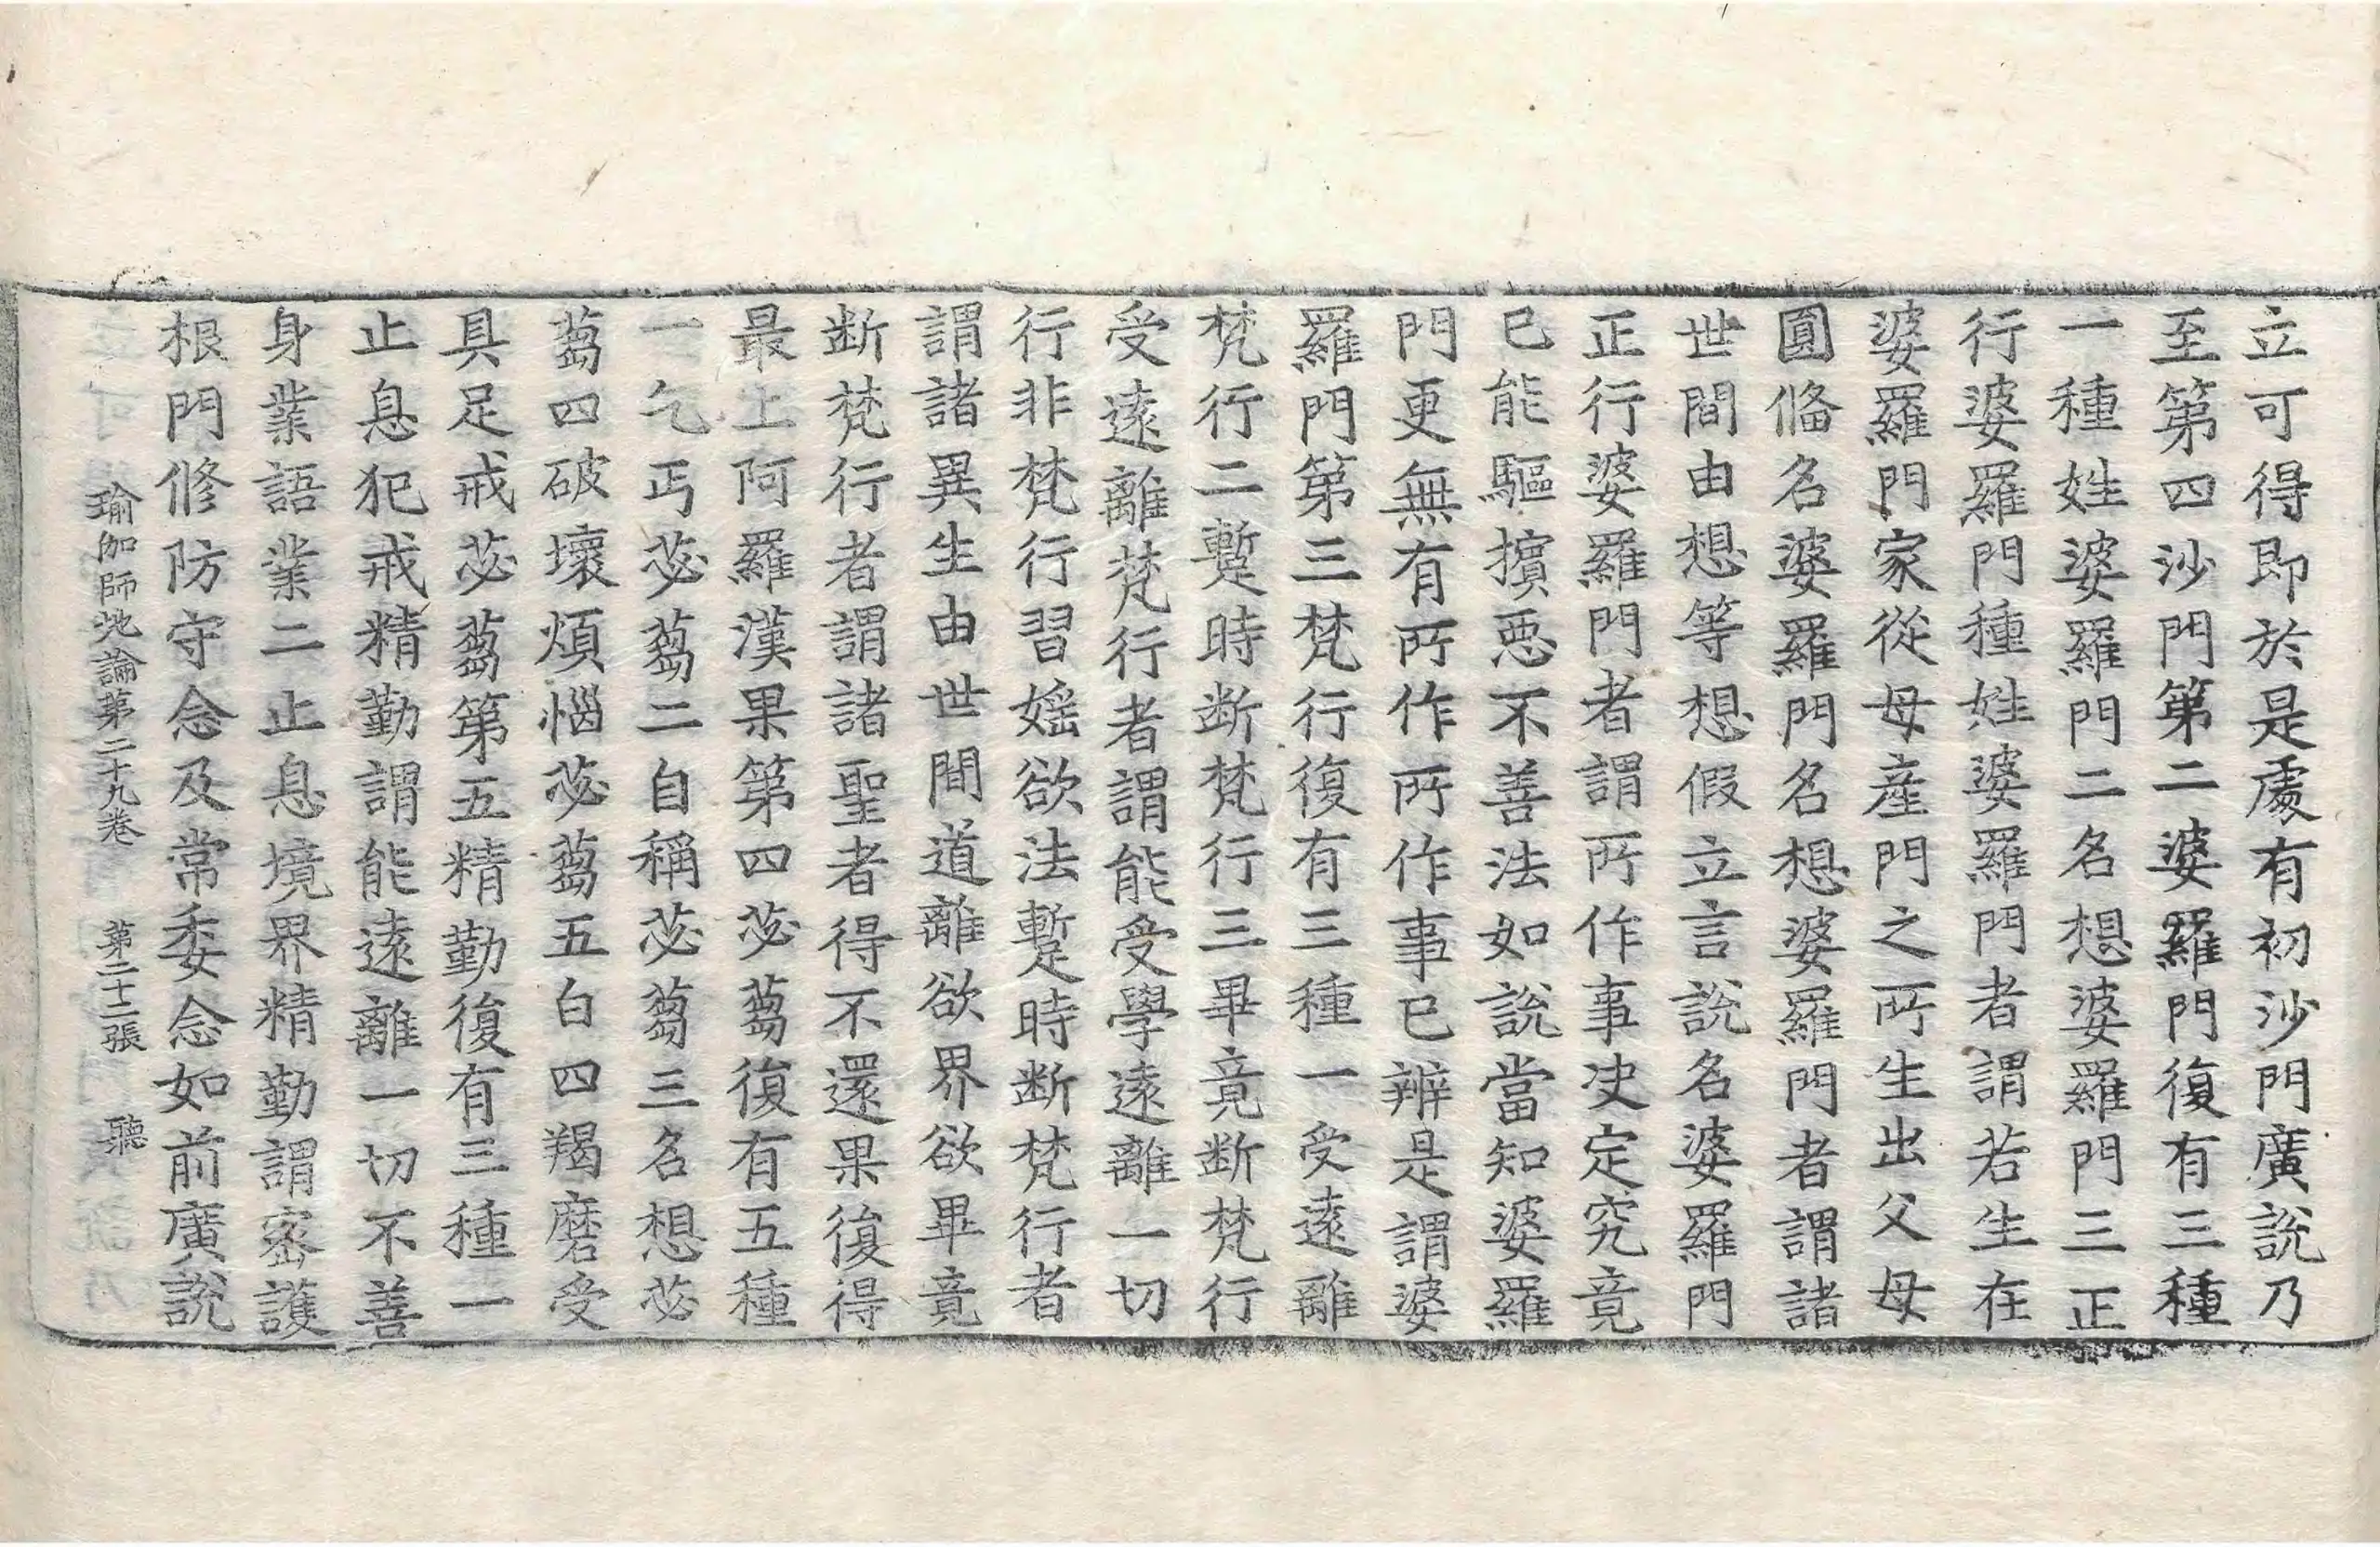 立可得即於是處有初沙門廣說乃
至第四沙門第二婆羅門復有三種
一種姓婆羅門二名想婆羅門三正
行婆羅門種姓婆羅門者謂若生在
婆羅門家從母産門之所生出父母
圓俻名婆羅門名想婆羅門者謂諸
世間由想等想假立言說名婆羅門
正行婆羅門者謂所作事决定究竟
已能驅擯惡不善法如說當知婆羅
門更無有所作所作事已辨是謂婆
羅門第三梵行復有三種一受遠離
梵行二蹔時断梵行三畢竟断梵行
受遠離梵行者謂能受學遠離一切
行非梵行習婬欲法蹔時断梵行者
謂諸異生由世間道離欲界欲畢竟
断梵行者謂諸聖者得不還果復得
最上阿羅漢果第四苾蒭復有五種
一乞丐苾蒭二自稱苾蒭三名想苾
蒭四破壞煩惱苾蒭五白四羯磨受
具足戒苾蒭第五精勤復有三種一
止息犯戒精勤謂能遠離一切不善
身業語業二止息境界精勤謂密護
根門修防守念及常委念如前廣說
瑜伽師地論第二十九卷　第二十二張　聽